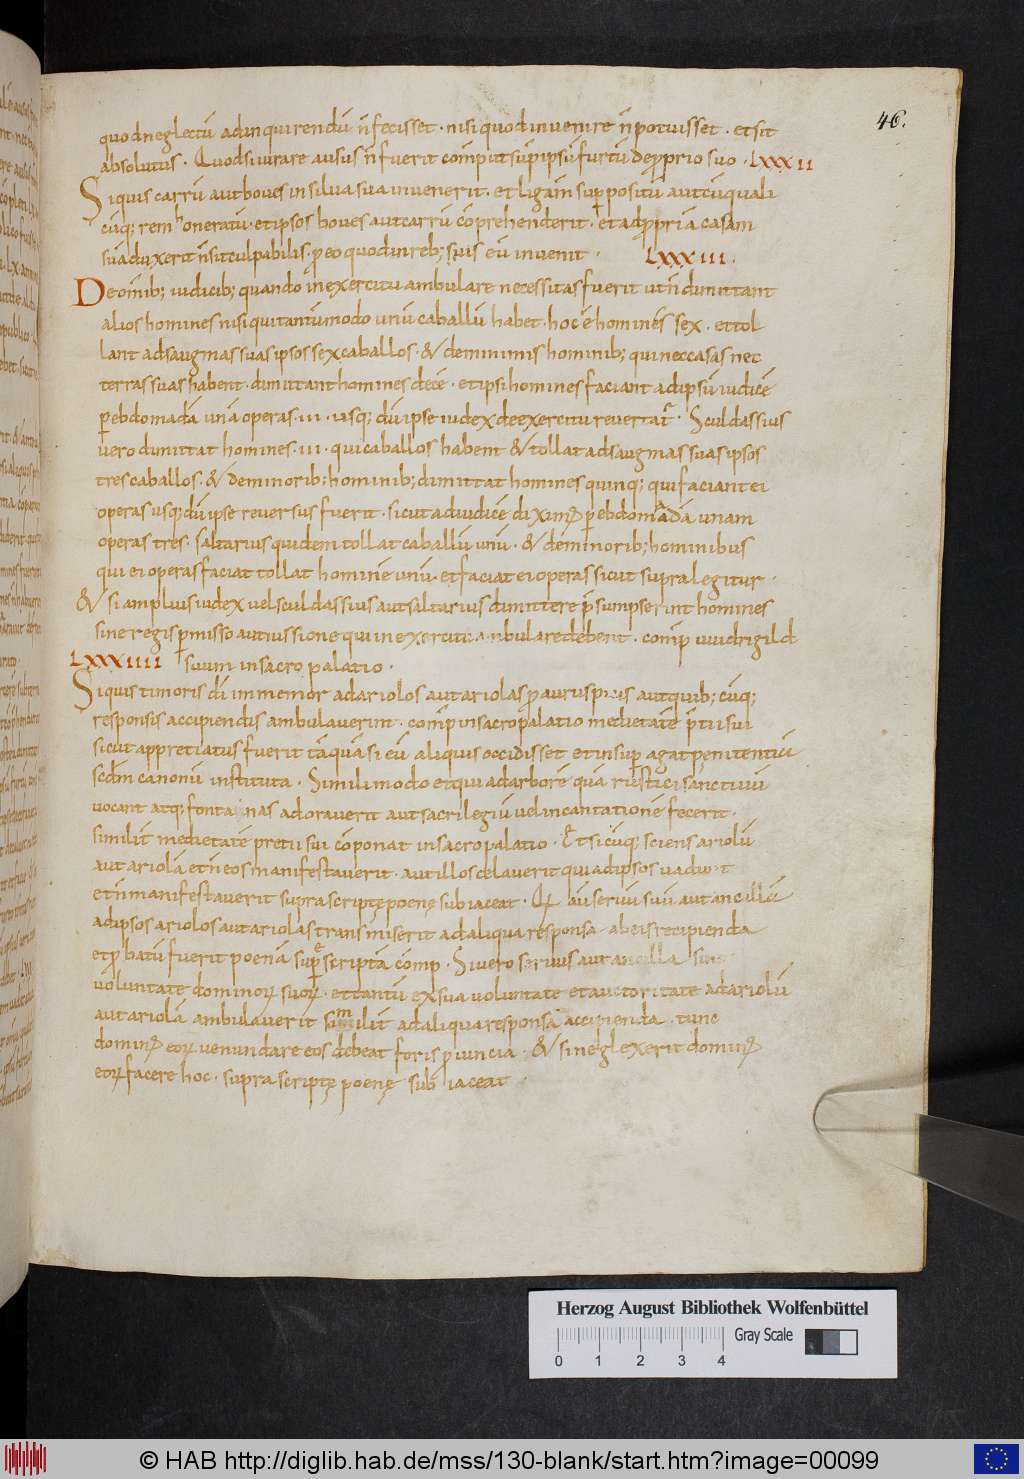 46.
quod neglectū adinquirendū n̄ fecisset · nisi quod invenire n̄ potuisset · et sit
absolutus · Quod si iurare ausus n̄ fuerit comp̄ ut sup̄ ipsū furtū de pprio suo · LXXXII
Siquis carrū aut boves in silva sua invenerit · et ligam̄ suppositū aut cū quali
cūq; rem honeratū · et ipsos boves aut carrū cōprehenderit · et ad ppriā casam
suā duxerit n̄ sit culpabilis · p eo quod in reb; suis eū invenit · LXXXIII ·
De om̄ib; iudicib; quando in exercitu ambulare necessitas fuerit ut n̄ dimittant
alios homines nisi qui tantūmodo unū caballū habet · hoc ē homines sex · et tol
lant ad saugmas suas ipsos sex caballos · & de minimis hominib; qui nec casas nec
terras suas habent · dimittant homines decē · et ipsi homines faciant ad ipsū iudicē
p ebdomadā unā operas · III · usq; dū ipse iudex de exercitu revertat̄ · Sculdassius
vero dimittat homines · III · qui caballos habent & tollat ad saugmas suas ipsos
tres caballos · & de minorib; hominib; dimittat homines quinq; qui faciant ei
operas usq; dū ipse reversus fuerit · sicut ad iudicē diximus p ebdomadā unam
operas tres · saltarius quidem tollat caballū unū · & de minorib; hominibus
qui ei operas faciat tollat hominē unū · et faciat ei operas sicut supra legitur ·
& si amplius iudex vel sculdassius aut saltarius dimittere p̄sumpserint homines
sine regis pmisso aut iussione qui in exercitu ambulare debent · comp̄ uuidrigild
LXXXIIII suum in sacro palatio ·
Siquis timoris dī immemor ad ariolos aut ariolas p auruspiciis aut quib; cūq;
responsis accipiendis ambulaverint · comp̄ in sacro palatio medietatē p̄tii sui
sicut appretiatus fuerit tāquā si eū aliquis occidisset et insup agat penitentiā
scdm̄ canonū instituta · Simili modo et qui ad arborē quā rustici sanctivū
vocant atq; fontanas adoraverit aut sacrilegiū vel incantationē fecerit ·
similit̄ medietatē pretii sui cōponat in sacro palatio · Et si cūq; sciens ariolū
aut ariolā et n̄ eos manifestaverit · aut illos celaverit qui ad ipsos vadunt
et n̄ manifestaverit suprascriptę poenę subiaceat · Q̄ aū servū suū aut ancillā
ad ipsos ariolos aut ariolas transmiserit ad aliqua responsa ab eis recipienda
et pbatū fuerit poenā suprascriptā comp̄ · Si vero servus aut ancilla sine
voluntate dominoꝝ suoꝝ · et tantū ex sua voluntate et auctoritate ad ariolū
aut ariolā ambulaverit similit̄ ad aliqua responsa accipienda · tunc
dominus eoꝝ venundare eos debeat foris pvincia · & si neglexerit dominus
eoꝝ facere hoc · suprascriptę poenę subiaceat ·
Herzog August Bibliothek Wolfenbüttel
Gray Scale
0 1 2 3 4
© HAB http://diglib.hab.de/mss/130-blank/start.htm?image=00099